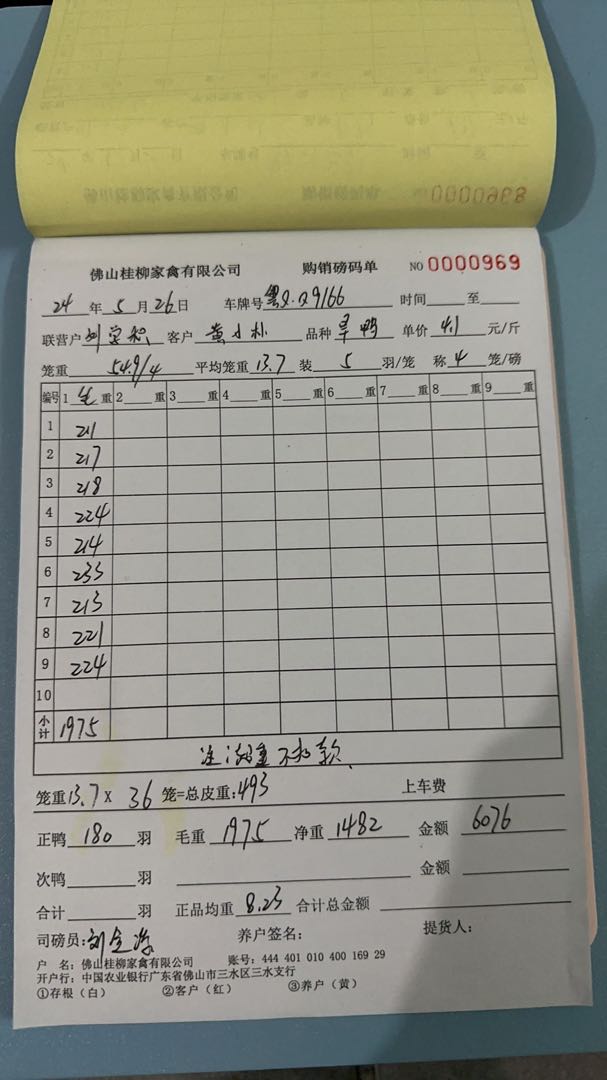 佛山桂柳家禽有限公司 购销磅码单 NO 0000969
24 年 5 月 26 日 车牌号 粤 Q9166 时间 至
联营户 刘 客户 黄小朴 品种 旱鸭 单价 4.1 元/斤
笼重 54.9/4 平均笼重 13.7 装 5 羽/笼 称 4 笼/磅
编号 1 毛 重 2 重 3 重 4 重 5 重 6 重 7 重 8 重 9 重
1 211
2 217
3 218
4 224
5 214
6 233
7 213
8 221
9 224
10
小计 1975
注: 重不 款
笼重 13.7 X 36 笼=总皮重: 493 上车费
正鸭 180 羽 毛重 1975 净重 1482 金额 6076
次鸭 羽 金额
合计 羽 正品均重 8.23 合计总金额
司磅员: 刘 养户签名: 提货人:
户 名: 佛山桂柳家禽有限公司 账号: 444 401 010 400 169 29
开户行: 中国农业银行广东省佛山市三水区三水支行
①存根（白） ②客户（红） ③养户（黄）